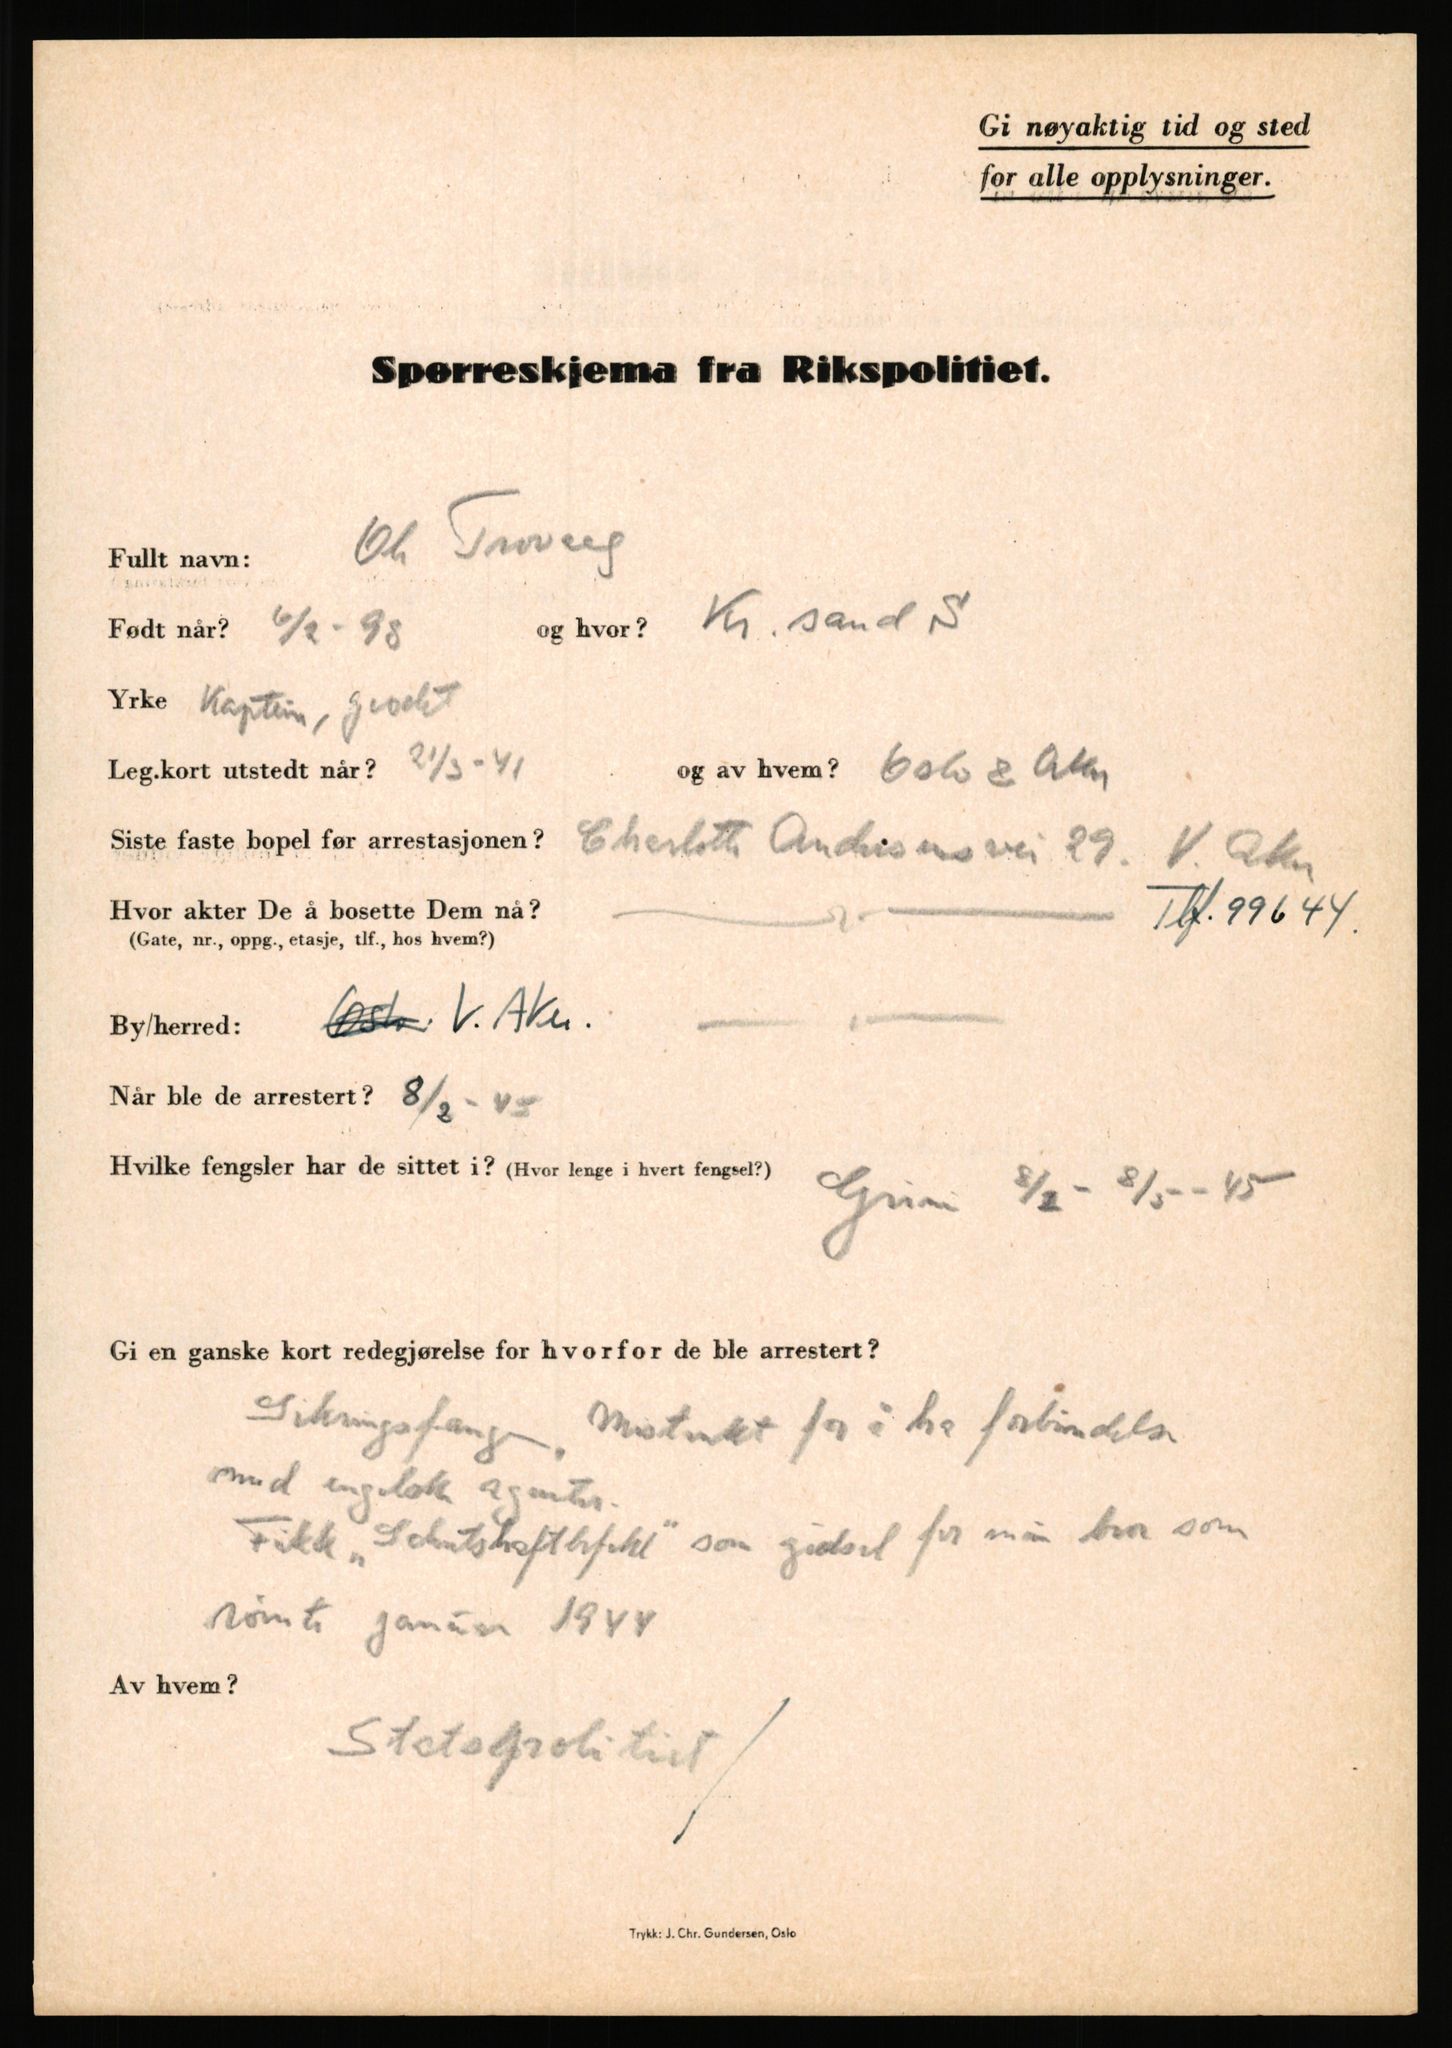 Gi nøyaktig tid og sted
for alle opplysninger.
Spørreskjema fra Rikspolitiet.
Fullt navn: Ole
Født når? 6/2 - 98 og hvor? Kr. sand S
Yrke Kaptein,
Leg.kort utstedt når? 21/3 - 41 og av hvem? Oslo & Aker
Siste faste bopel før arrestasjonen? Charlotte Andersens vei 29. V. Aker
Hvor akter De å bosette Dem nå? — " — Tlf. 99644.
(Gate, nr., oppg., etasje, tlf., hos hvem?)
By/herred: Oslo. V. Aker. — " —
Når ble de arrestert? 8/2 - 45
Hvilke fengsler har de sittet i? (Hvor lenge i hvert fengsel?) Grini 8/2 - 8/5 - 45
Gi en ganske kort redegjørelse for hvorfor de ble arrestert?
Sikringsfange, Mistenkt for å ha forbindelse
med engelske agenter.
Fikk „Schutshaftbefehl" som gidsel for min bror som
rømte januar 1944
Av hvem?
Statspolitiet
Trykk: J. Chr. Gundersen, Oslo